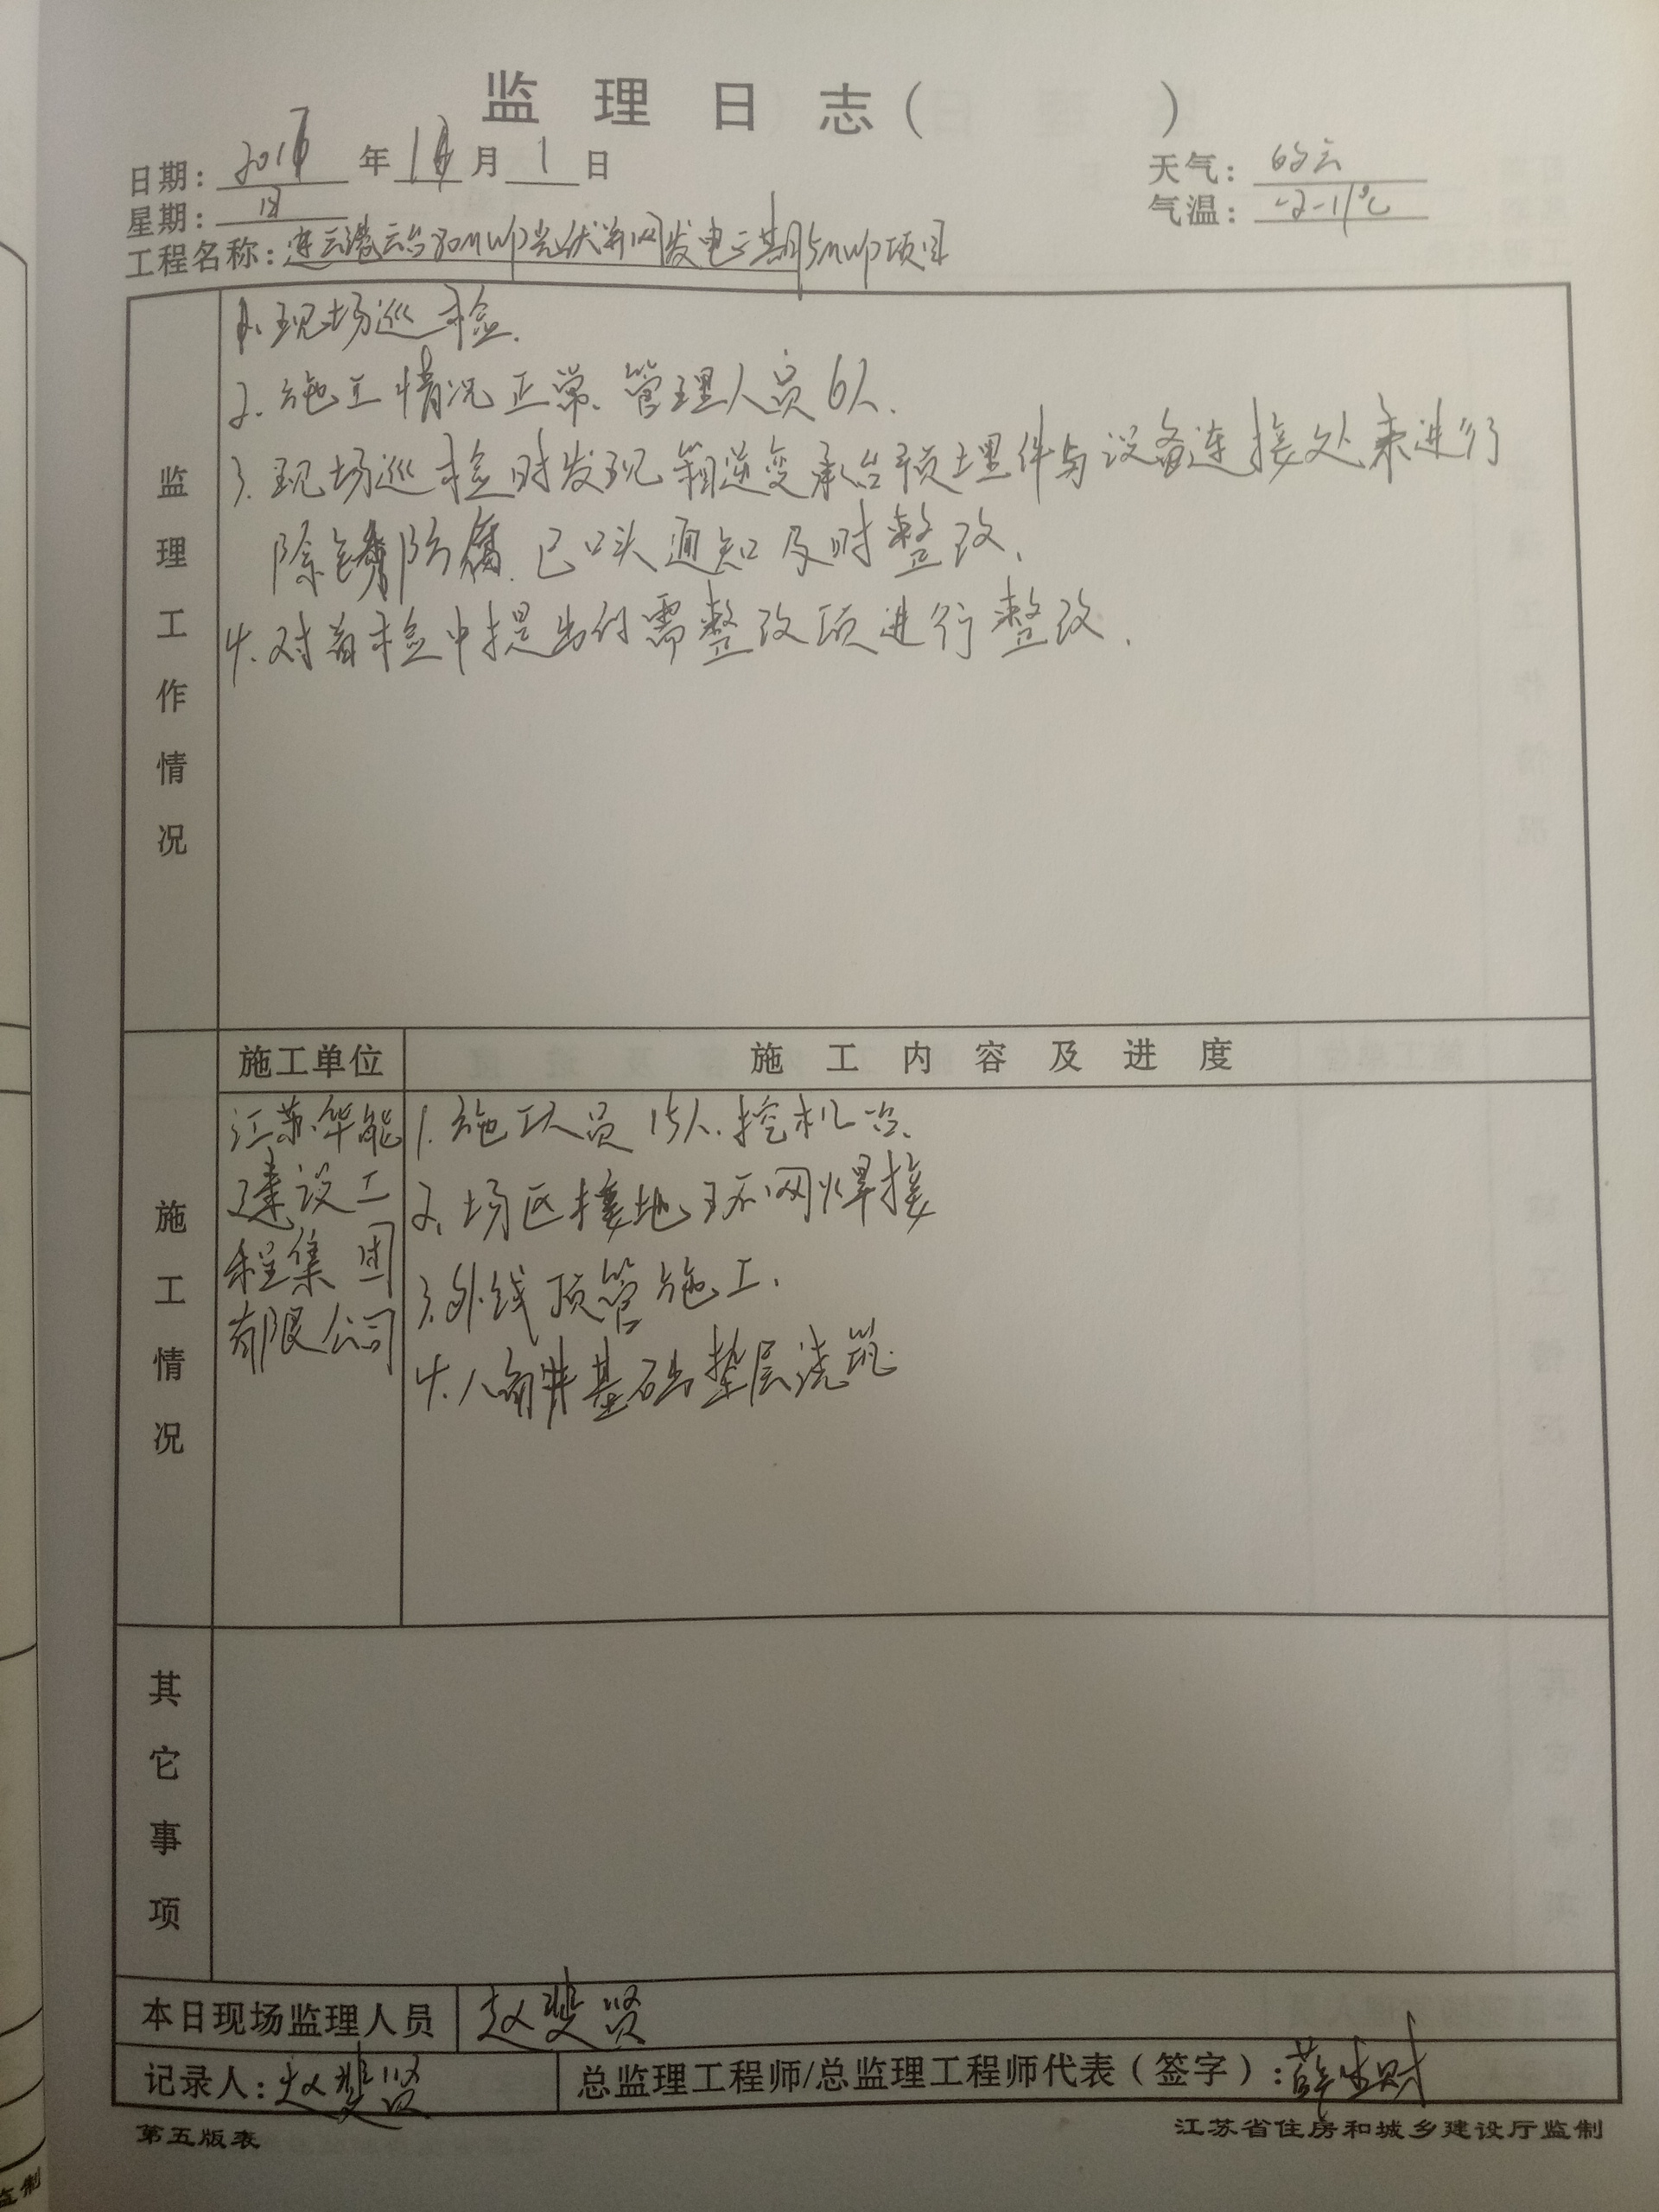 监理日志( )
日期: 2017 年 1 月 1 日 天气: 多云
星期: 日 气温: -2-11℃
工程名称: 连云港云台80MWp光伏并网发电二期5MWp项目
监理工作情况
1、现场巡检.
2、施工情况正常、管理人员6人.
3. 现场巡检时发现箱逆变承台预埋件与设备连接处未进行
除锈防腐. 已口头通知及时整改、
4. 对首检中提出的需整改项进行整改.
施工单位 施工内容及进度
施工情况
江苏华能
建设工
程集团
有限公司
1. 施工人员15人. 挖机一台、
2、场区接地环网焊接
3. 外线顶管施工.
4. 基础垫层浇筑
其它事项
本日现场监理人员 赵斐贤
记录人: 赵斐贤 总监理工程师/总监理工程师代表(签字): 薛生财
第五版表 江苏省住房和城乡建设厅监制
监制